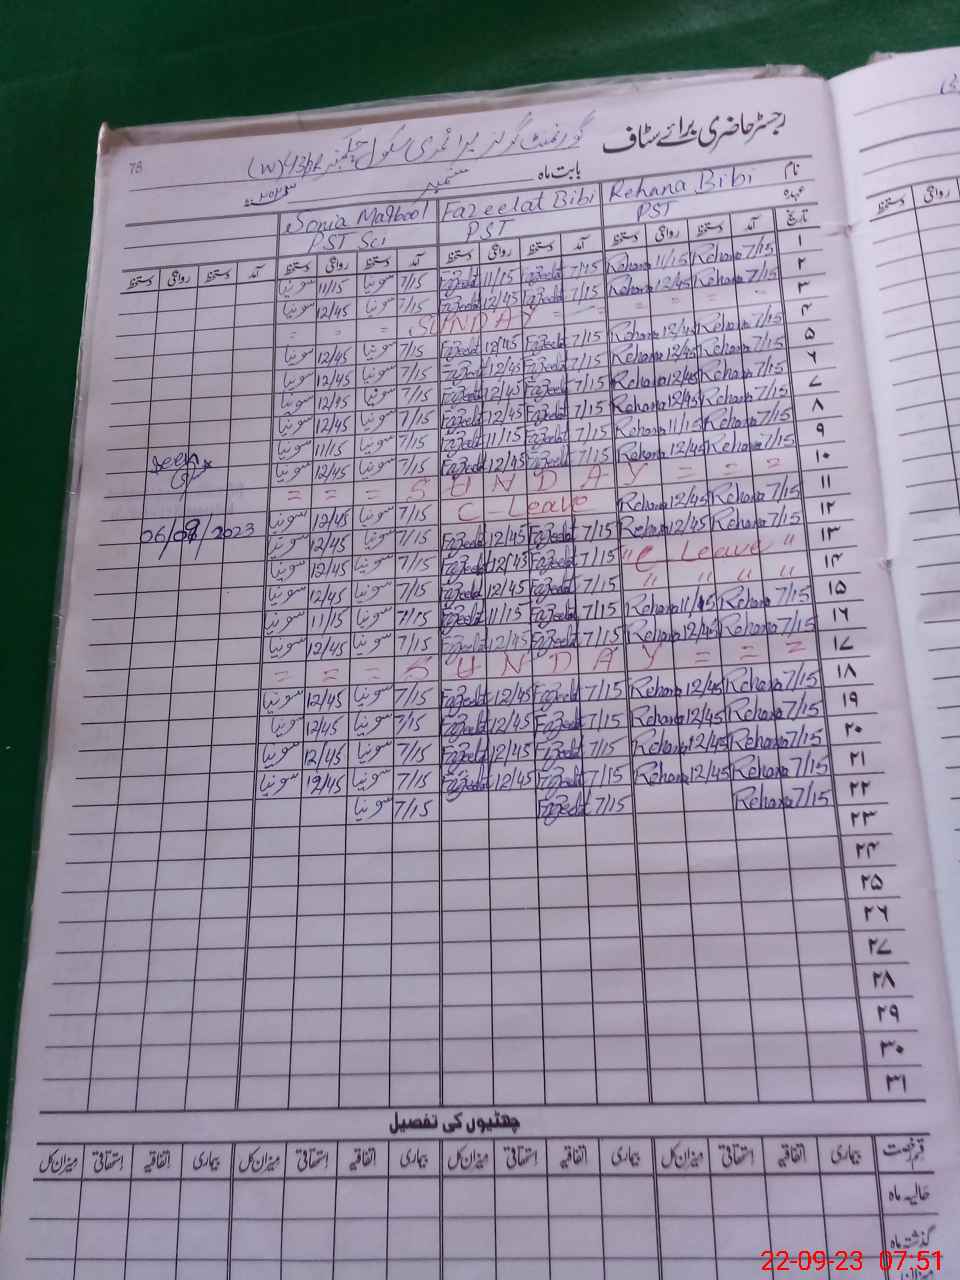 رجسٹر حاضری برائے سٹاف گورنمنٹ گرلز پرائمری سکول چکنمبر 43/12 (W)
78
بابت ماہ ستمبر ۲۰۲۳ء
نام Rehana Bibi Fazeelat Bibi Sonia Maqbool
عہدہ PST PST PST Sci
تاریخ آمد دستخط روانگی دستخط آمد دستخط روانگی دستخط آمد دستخط روانگی دستخط آمد دستخط روانگی دستخط
۱ 7/15 Rehana 11/15 Rehana 7/15 Fazeelat 11/15 Fazeelat 7/15 سونیا 11/15 سونیا
۲ 7/15 Rehana 12/45 Rehana 7/15 Fazeelat 12/45 Fazeelat 7/15 سونیا 12/45 سونیا
۳ = = = SUNDAY = = = =
۴ 7/15 Rehana 12/45 Rehana 7/15 Fazeelat 12/45 Fazeelat 7/15 سونیا 12/45 سونیا
۵ 7/15 Rehana 12/45 Rehana 7/15 Fazeelat 12/45 Fazeelat 7/15 سونیا 12/45 سونیا
۶ 7/15 Rehana 12/45 Rehana 7/15 Fazeelat 12/45 Fazeelat 7/15 سونیا 12/45 سونیا
۷ 7/15 Rehana 12/45 Rehana 7/15 Fazeelat 12/45 Fazeelat 7/15 سونیا 12/45 سونیا
۸ 7/15 Rehana 11/15 Rehana 7/15 Fazeelat 11/15 Fazeelat 7/15 سونیا 11/15 سونیا
۹ 7/15 Rehana 12/45 Rehana 7/15 Fazeelat 12/45 Fazeelat 7/15 سونیا 12/45 سونیا
seen
۱۰ = = = S U N D A Y = = =
۱۱ 7/15 Rehana 12/45 Rehana C-Leave 7/15 سونیا 12/45 سونیا
06/09/2023
۱۲ 7/15 Rehana 12/45 Rehana 7/15 Fazeelat 12/45 Fazeelat 7/15 سونیا 12/45 سونیا
۱۳ " C Leave " 7/15 Fazeelat 12/45 Fazeelat 7/15 سونیا 12/45 سونیا
۱۴ " " " " 7/15 Fazeelat 12/45 Fazeelat 7/15 سونیا 12/45 سونیا
۱۵ 7/15 Rehana 11/15 Rehana 7/15 Fazeelat 11/15 Fazeelat 7/15 سونیا 11/15 سونیا
۱۶ 7/15 Rehana 12/45 Rehana 7/15 Fazeelat 12/45 Fazeelat 7/15 سونیا 12/45 سونیا
۱۷ = = = S U N D A Y = = =
۱۸ 7/15 Rehana 12/45 Rehana 7/15 Fazeelat 12/45 Fazeelat 7/15 سونیا 12/45 سونیا
۱۹ 7/15 Rehana 12/45 Rehana 7/15 Fazeelat 12/45 Fazeelat 7/15 سونیا 12/45 سونیا
۲۰ 7/15 Rehana 12/45 Rehana 7/15 Fazeelat 12/45 Fazeelat 7/15 سونیا 12/45 سونیا
۲۱ 7/15 Rehana 12/45 Rehana 7/15 Fazeelat 12/45 Fazeelat 7/15 سونیا 12/45 سونیا
۲۲ 7/15 Rehana 7/15 Fazeelat 7/15 سونیا
۲۳
۲۴
۲۵
۲۶
۲۷
۲۸
۲۹
۳۰
۳۱
چھٹیوں کی تفصیل
قسم رخصت بیماری اتفاقیہ استحقاقی میزان کل بیماری اتفاقیہ استحقاقی میزان کل بیماری اتفاقیہ استحقاقی میزان کل بیماری اتفاقیہ استحقاقی میزان کل
حالیہ ماہ
گذشتہ ماہ
22-09-23 07:51